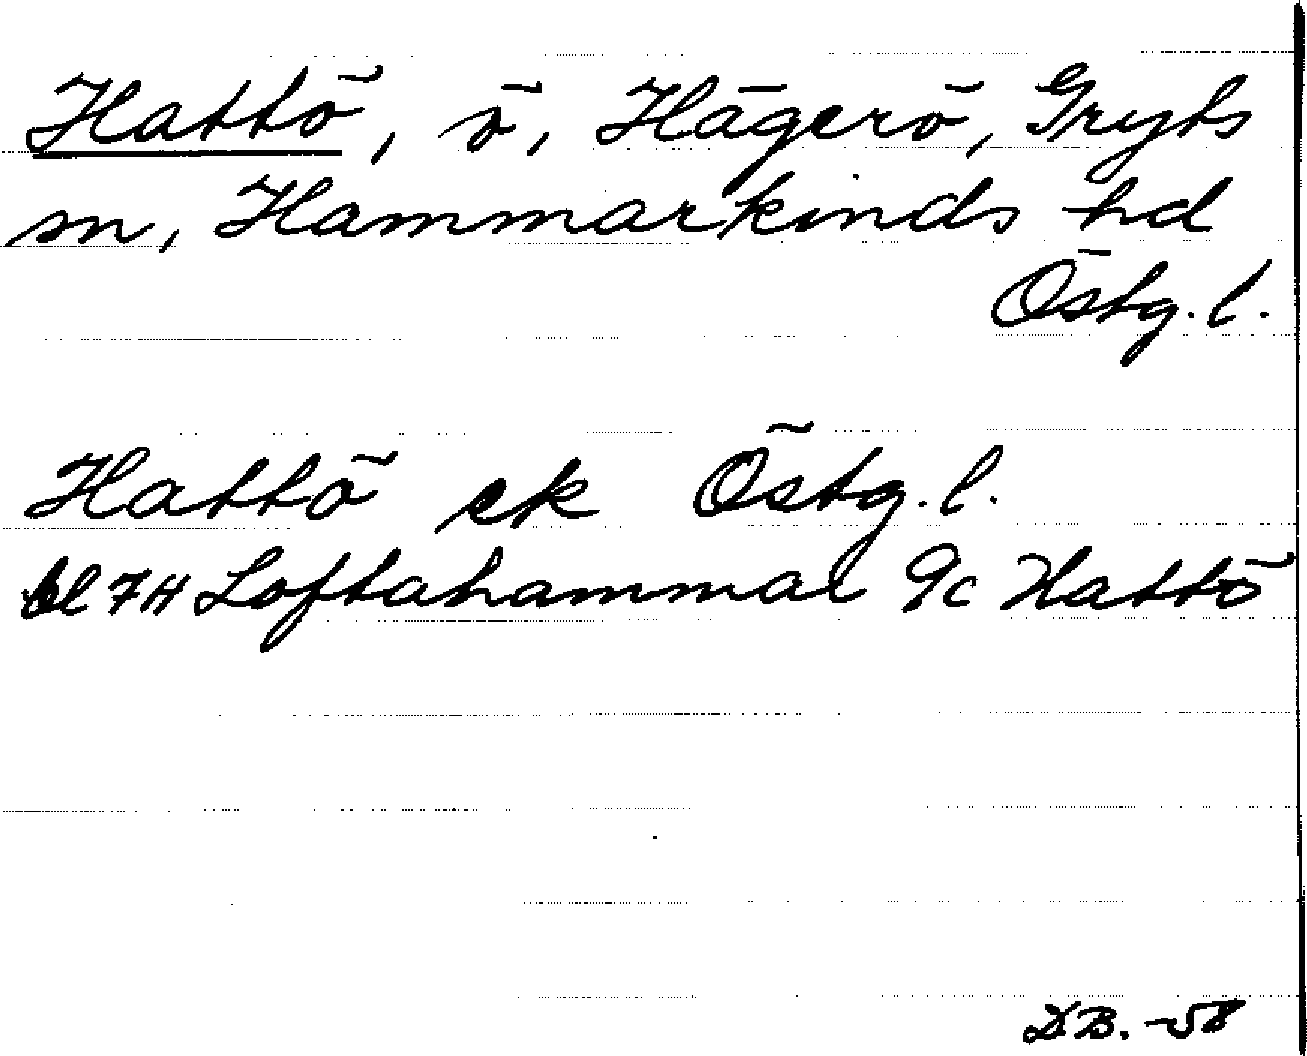 Hattö, ö, Hägerö, Gryts
sn, Hammarkinds hd
Östg. l.
Hattö ek Östg. l.
bl 7H Loftahammar 9c Hattö
D.B. -58